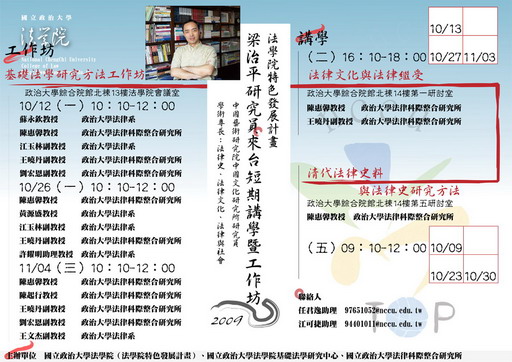 國立政治大學
法學院
National Chengchi University
College of Law
工作坊
基礎法學研究方法工作坊
政治大學綜合院館北棟13樓法學院會議室
10/12（一）10：10-12：00
蘇永欽教授 政治大學法律系
陳惠馨教授 政治大學法律科際整合研究所
江玉林副教授 政治大學法律系
王曉丹副教授 政治大學法律科際整合研究所
劉宏恩副教授 政治大學法律科際整合研究所
10/26（一）10：10-12：00
陳惠馨教授 政治大學法律科際整合研究所
黃源盛教授 政治大學法律系
江玉林副教授 政治大學法律系
王曉丹副教授 政治大學法律科際整合研究所
許耀明助理教授 政治大學法律系
11/04（三）10：10-12：00
陳惠馨教授 政治大學法律科際整合研究所
陳起行教授 政治大學法律科際整合研究所
王曉丹副教授 政治大學法律科際整合研究所
劉宏恩副教授 政治大學法律科際整合研究所
王文杰副教授 政治大學法律科際整合研究所
法學院特色發展計畫
梁治平研究員來台短期講學暨工作坊
中國藝術研究院中國文化研究所研究員
學術專長：法律史、法律文化、法律與社會
2009
講學
（二）16：10-18：00
10/13
10/27
11/03
法律文化與法律繼受
政治大學綜合院館北棟14樓第一研討室
陳惠馨教授 政治大學法律科際整合研究所
王曉丹副教授 政治大學法律科際整合研究所
清代法律史料
與法律史研究方法
政治大學綜合院館北棟14樓第五研討室
陳惠馨教授 政治大學法律科際整合研究所
（五）09：10-12：00
10/09
10/23
10/30
聯絡人
任君逸助理 97651052@nccu.edu.tw
江可捷助理 94401011@nccu.edu.tw
TOP
主辦單位 國立政治大學法學院（法學院特色發展計畫）、國立政治大學法學院基礎法學研究中心、國立政治大學法律科際整合研究所